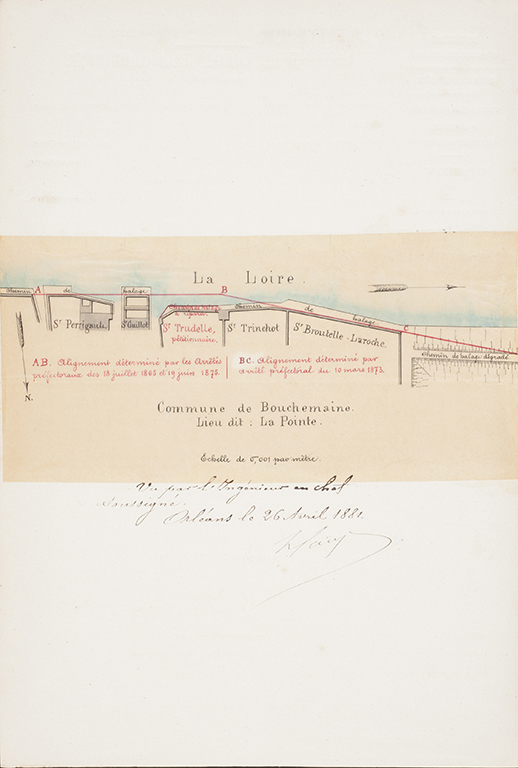 La Loire.
Chemin A de halage B Chemin de halage C
Sr Perrigault Sr Guillot Sr Trudelle, pétitionnaire. Sr Trinchot Sr Broutelle-Laroche.
Chemin de halage dégradé
AB. Alignement déterminé par les Arrêtés
préfectoraux des 18 juillet 1865 et 19 juin 1875.
BC. Alignement déterminé par
arrêté préfectoral du 10 mars 1873.
N.
Commune de Bouchemaine.
Lieu dit : La Pointe.
Echelle de 0,001 par mètre.
Vu par l'Ingénieur en chef
soussigné.
Orléans le 26 Avril 1881.